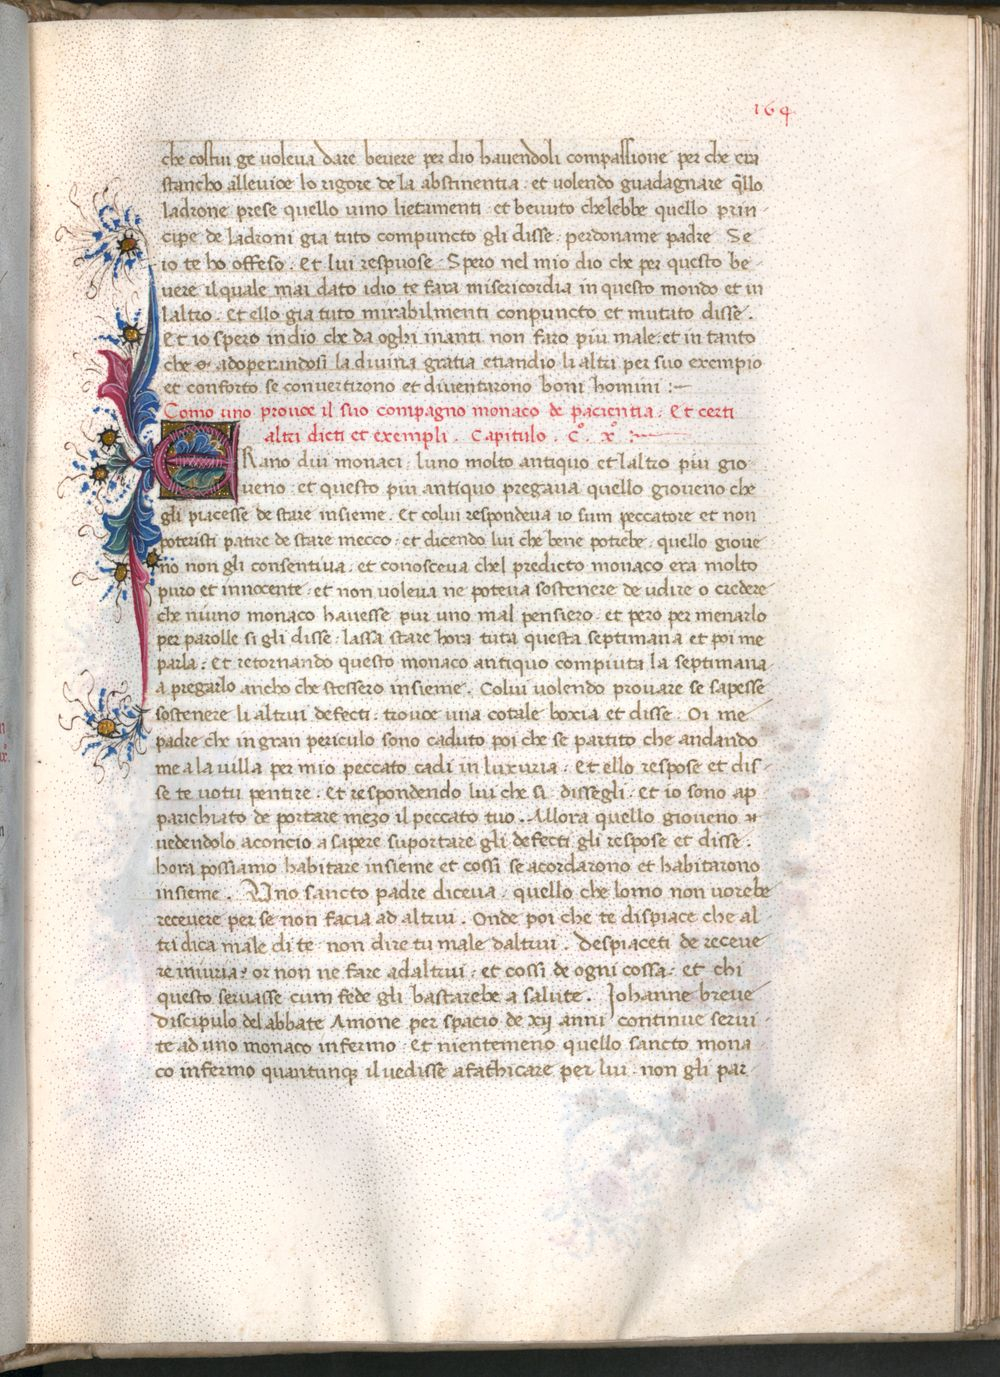 164
che costui ge voleva dare bevere per dio havendoli compassione per che era
stancho allevioe lo rigore de la abstinentia · et volendo guadagnare q̃llo
ladrone prese quello vino lietamenti · et bevuto chelebbe quello prin-
cipe de ladroni gia tuto compuncto gli disse · perdoname padre Se
io te ho offeso · Et lui respuose · Spero nel mio dio che per questo be-
vere il quale mai dato idio te fara misericordia in questo mondo et in
laltro · Et ello gia tuto mirabilmenti conpuncto et mutato disse ·
Et io spero in dio che da oghi inanti non faro piu male · et in tanto
che adoperandosi la divina gratia etiandio li altri per suo exempio
et conforto se convertirono et diventarono boni homini :—
Como uno provoe il suo compagno monaco de pacientia · Et certi
altri dicti et exempli · Capitulo · C° · x° :—
ERano dui monaci · luno molto antiquo et laltro piu gio
veno · et questo piu antiquo pregava quello gioveno che
gli piacesse de stare insieme · Et colui respondeva io sum peccatore et non
poteristi patire de stare mecco · et dicendo lui che bene potrebe · quello giove
no non gli consentiva · et conosceva chel predicto monaco era molto
puro et innocente · et non voleva ne poteva sostenere de udire o credere
che niuno monaco havesse pur uno mal pensiero · et pero per menarlo
per parolle si gli disse · lassa stare hora tuta questa septimana et poi me
parla · Et retornando questo monaco antiquo compiuta la septimana
a pregarlo ancho che stessero insieme · Colui volendo provare se sapesse
sostenere li altrui defecti · trovoe una cotale boxia et disse · Oi me
padre che in gran periculo sono caduto poi che se partito che andando
me a la villa per mio peccato cadi in luxuria · Et ello respose et dis-
se te votu pentire · Et respondendo lui che si · dissegli · Et io sono ap
parichiato de portare mezo il peccato tuo · Allora quello gioveno
vedendolo aconcio a sapere suportare gli defecti gli respose et disse ·
hora possiamo habitare insieme et cossi se acordarono et habitarono
insieme · Uno sancto padre diceva · quello che lomo non vorebe
recevere per se non facia ad altrui · Onde poi che te dispiace che al
tri dica male di te · non dire tu male daltrui · Despiaceti de receve
re iniuria · or non ne fare ad altrui · et cossi de ogni cossa · et chi
questo servasse cum fede gli bastarebe a salute · Johanne breve
discipulo del abbate Amone per spacio de xij anni continue servi-
te ad uno monaco infermo · Et nientemeno quello sancto mona
co infermo quantunq̃ il vedisse afathicare per lui · non gli par